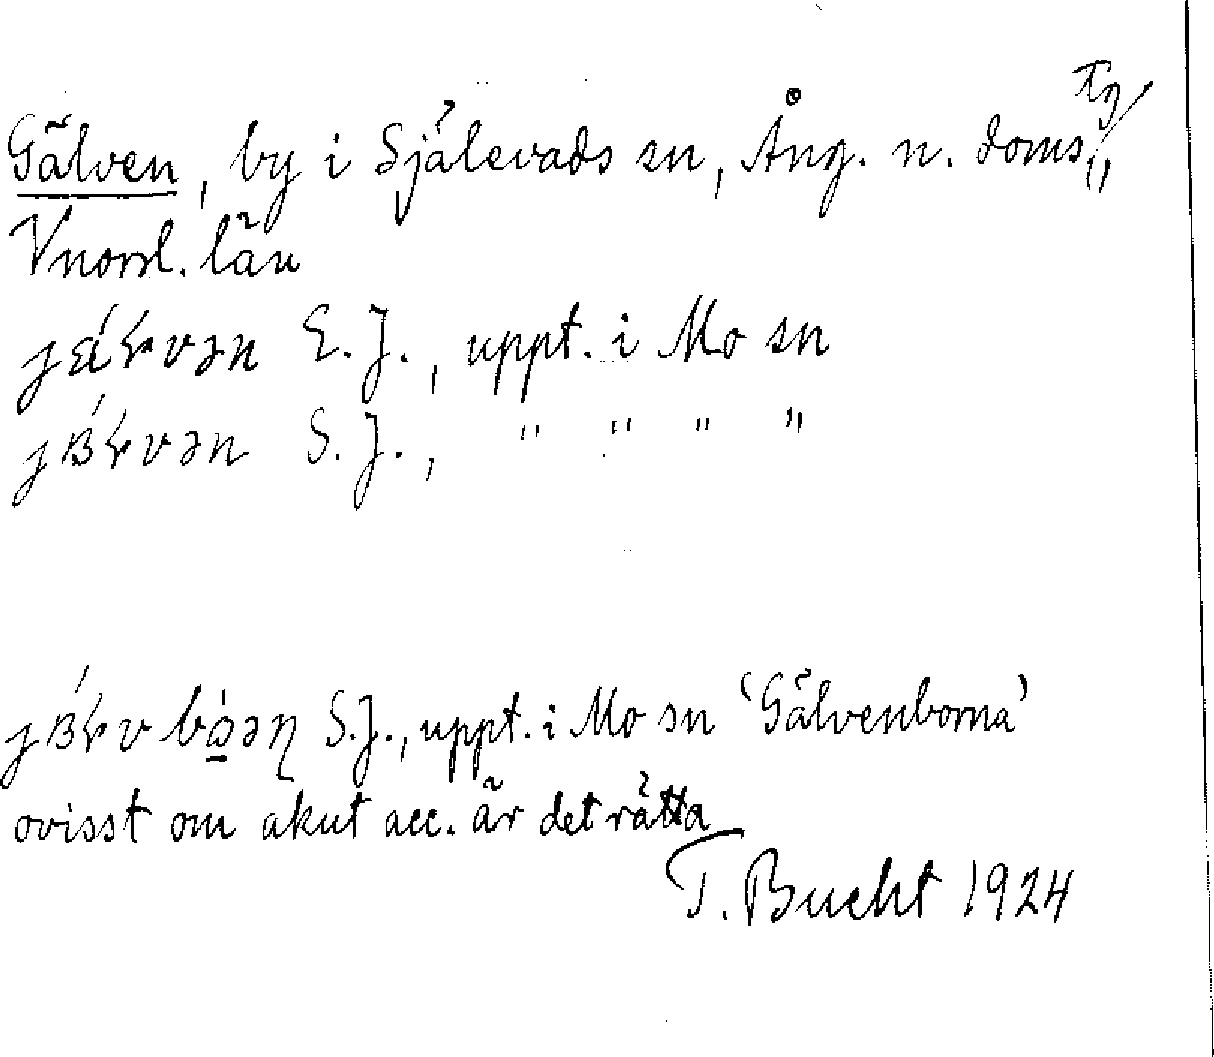 Gälven, by i Själevads sn, Ång. n. doms.,
Vnorrl. län
E. J., uppt. i Mo sn
S. J., " " " "
S.J., uppt. i Mo sn 'Gälvenborna'
ovisst om akut acc. är det rätta
T. Bucht 1924